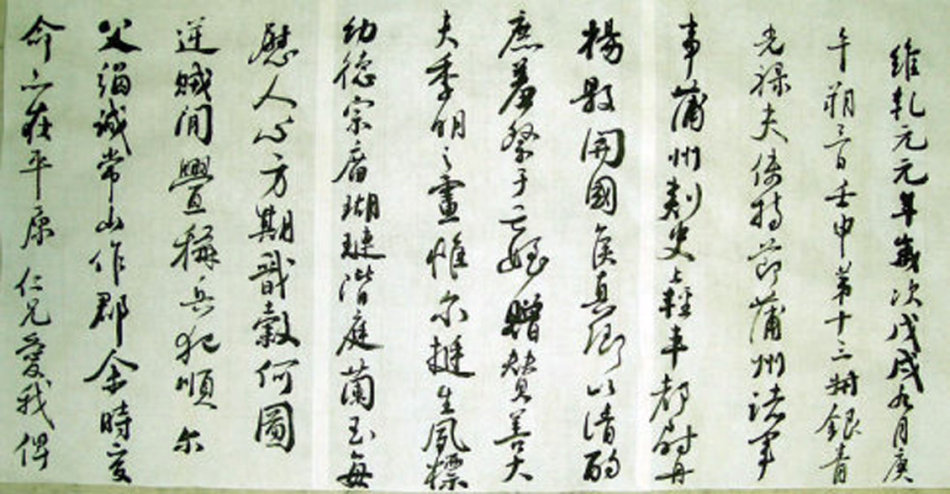 維乾元元年歲次戊戌九月庚
午朔三日壬申第十三叔銀青
光祿夫使持節蒲州諸軍
事蒲州刺史上輕車都尉丹
楊縣開國侯真卿以清酌
庶羞祭于亡姪贈贊善大
夫季明之靈惟爾挺生夙標
幼德宗廟瑚璉階庭蘭玉每
慰人心方期戩穀何圖
逆賊閒釁稱兵犯順爾
父竭誠常山作郡余時受
命亦在平原仁兄愛我俾